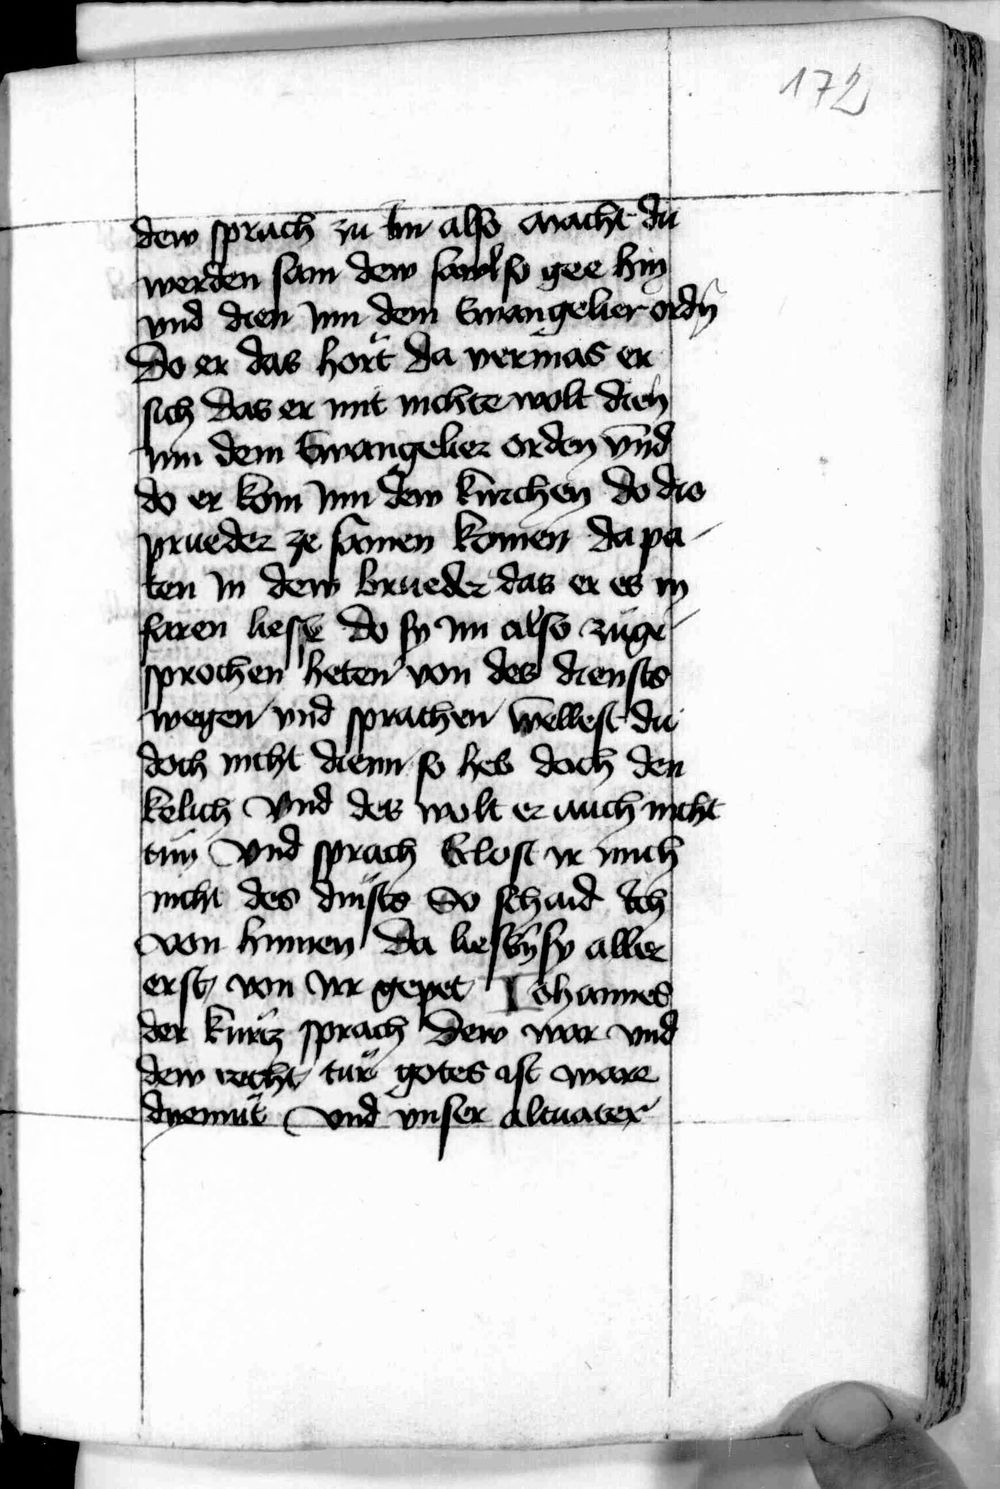 172
dew sprach zu Im also macht du
werden sam dew sawl so gee hin
vnd dien Inn dem Ewangelier ordn̄
Do er das hort da vermas er
sich das er mit nichte wolt dien
Inn dem Ewangelier orden vnd
do er kom Inn dew kirchen do die
prueder ze samen komen da pa
ten In dew brueder das er es in
faren liess Do sy im also zuge
sprochen heten von des diensts
wegen vnd sprachen wellest du
doch nicht dienn so heb doch den
kelich Vnd des wolt er auch nicht
tun Vnd sprach Erlost ir mich
nicht des dinsts So schaid Ich
von hinnen Da liessn̄ sy aller
erst von Irr gepet Iohannes
der kurtz sprach Dew war vnd
dew recht tur gotes ist ware
dyemut Vnd vnser altuater